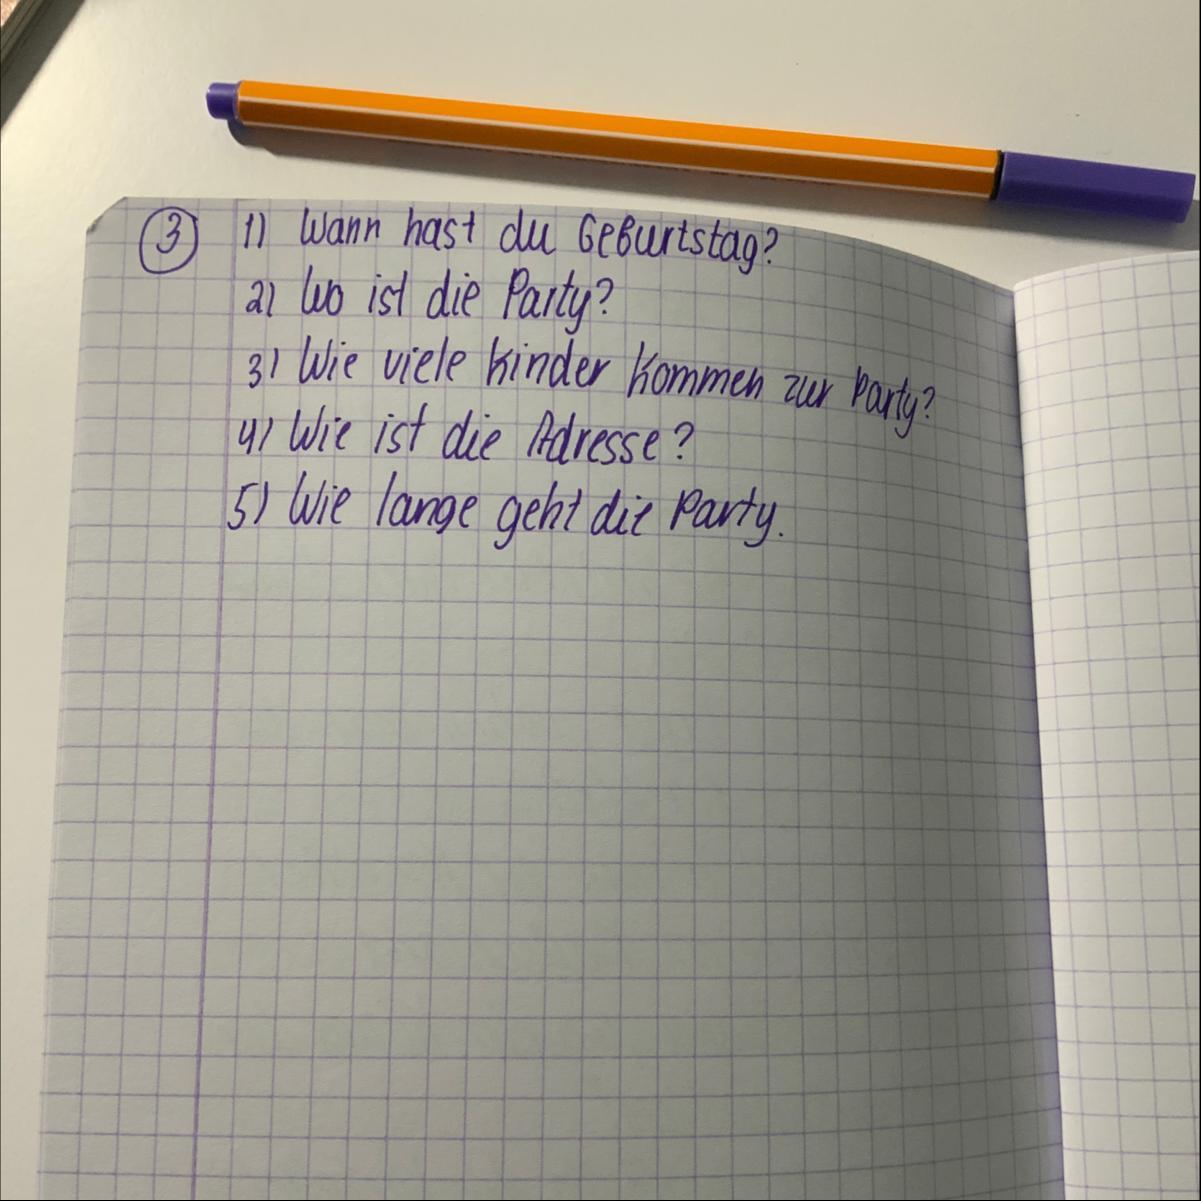 3 1) Wann hast du Geburtstag?
2) Wo ist die Party?
3) Wie viele Kinder kommen zur Party?
4) Wie ist die Adresse?
5) Wie lange geht die Party.